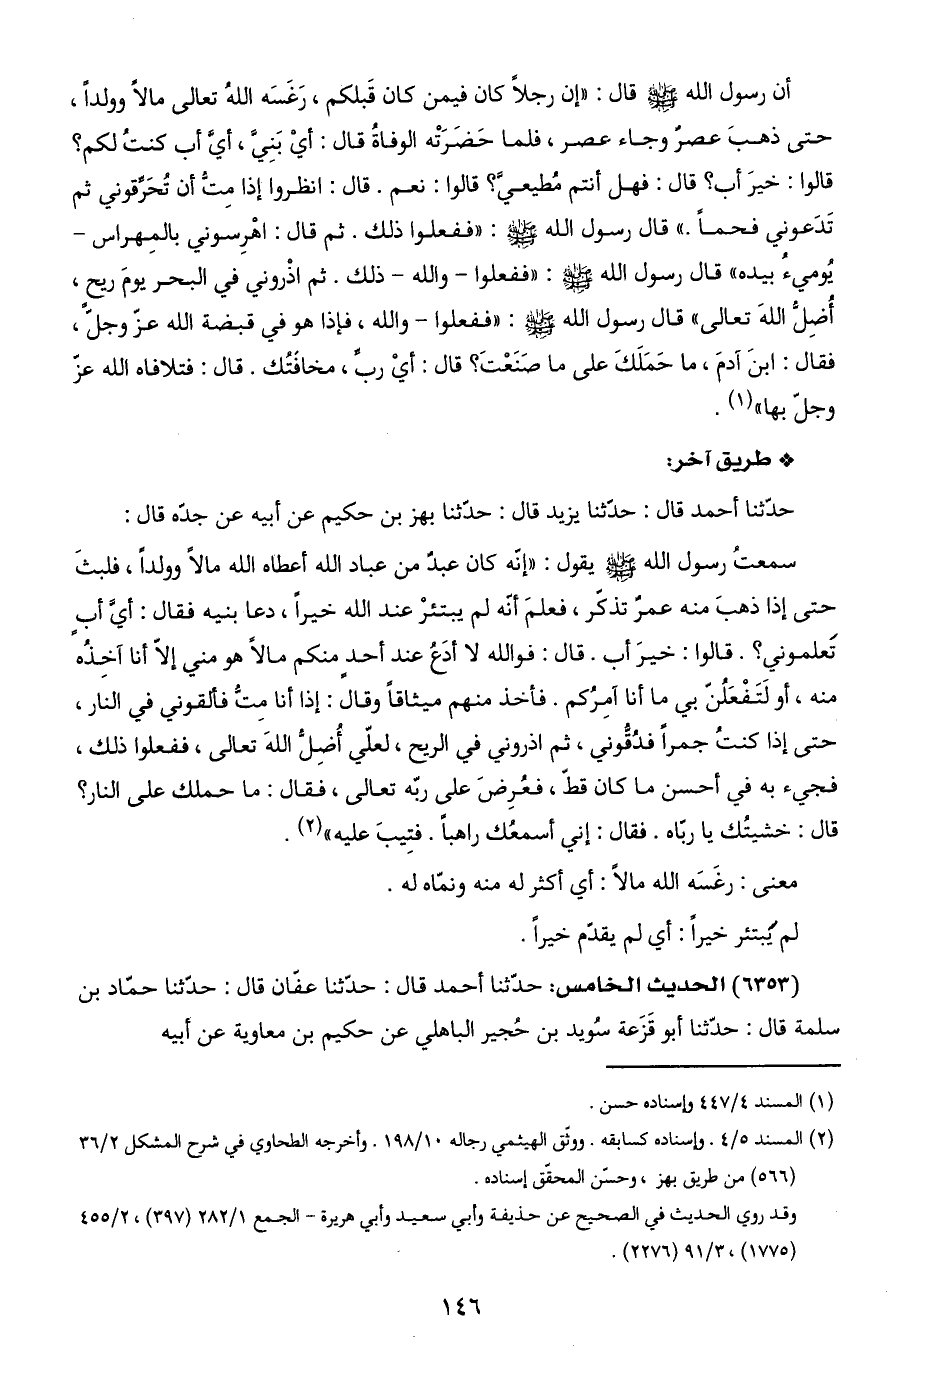 أن رسول الله ﷺ قال : «إن رجلاً كان فيمن كان قَبلكم ، رَغَسَه اللهُ تعالى مالاً وولداً ،
حتى ذهبَ عصرٌ وجاء عصر ، فلما حَضَرَتْه الوفاةُ قال : أيْ بَنِيَّ ، أيَّ أب كنتُ لكم؟
قالوا : خيرَ أب؟ قال : فهل أنتم مُطيعيَّ؟ قالوا : نعم . قال : انظروا إذا مِتُّ أن تُحَرِّقوني ثم
تَدَعوني فحماً .» قال رسول الله ﷺ : «ففعلوا ذلك . ثم قال : اهْرِسوني بالمِهراس -
يُوميءُ بيده» قال رسول الله ﷺ : «ففعلوا - والله - ذلك . ثم اذْروني في البحر يومَ ريح ،
أُضِلُّ اللهَ تعالى» قال رسول الله ﷺ : «ففعلوا - والله ، فإذا هو في قبضة الله عزّ وجلّ ،
فقال : ابنَ آدمَ ، ما حَمَلَكَ على ما صَنَعْتَ؟ قال : أيْ ربِّ ، مخافَتُك . قال : فتلافاه الله عزّ
وجلّ بها»(١) .
❖ طريق آخر:
حدّثنا أحمد قال : حدّثنا يزيد قال : حدّثنا بهز بن حكيم عن أبيه عن جدّه قال :
سمعتُ رسول الله ﷺ يقول : «إنّه كان عبدٌ من عباد الله أعطاه الله مالاً وولداً ، فلبثَ
حتى إذا ذهبَ منه عمرٌ تذكّر ، فعلمَ أنّه لم يبتئرْ عند الله خيراً ، دعا بنيه فقال : أيَّ أبٍ
تَعلموني؟ . قالوا : خيرَ أب . قال : فوالله لا أدَعُ عند أحدٍ منكم مالاً هو مني إلاّ أنا آخِذُه
منه ، أو لَتَفْعَلُنّ بي ما أنا آمِرُكم . فأخذ منهم ميثاقاً وقال : إذا أنا مِتُّ فألقوني في النار ،
حتى إذا كنتُ جمراً فدُقُّوني ، ثم اذروني في الريح ، لعلّي أُضِلُّ اللهَ تعالى ، ففعلوا ذلك ،
فجيء به في أحسن ما كان قطّ ، فعُرِضَ على ربّه تعالى ، فقال : ما حملك على النار؟
قال : خشيتُك يا ربّاه . فقال : إني أسمعُك راهباً . فتِيبَ عليه»(٢) .
معنى : رغَسَه الله مالاً : أي أكثر له منه ونمّاه له .
لم يُبتئر خيراً : أي لم يقدّم خيراً .
(٦٣٥٣) الحديث الخامس: حدّثنا أحمد قال : حدّثنا عفّان قال : حدّثنا حمّاد بن
سلمة قال : حدّثنا أبو قَزَعة سُويد بن حُجير الباهلي عن حكيم بن معاوية عن أبيه
(١) المسند ٤٤٧/٤ وإسناده حسن .
(٢) المسند ٤/٥ . وإسناده كسابقه . ووثّق الهيثمي رجاله ١٩٨/١٠ . وأخرجه الطحاوي في شرح المشكل ٣٦/٢
(٥٦٦) من طريق بهز ، وحسّن المحقّق إسناده .
وقد روي الحديث في الصحيح عن حذيفة وأبي سعيد وأبي هريرة - الجمع ٢٨٢/١ (٣٩٧) ، ٤٥٥/٢
(١٧٧٥) ، ٩١/٣ (٢٢٧٦) .
١٤٦